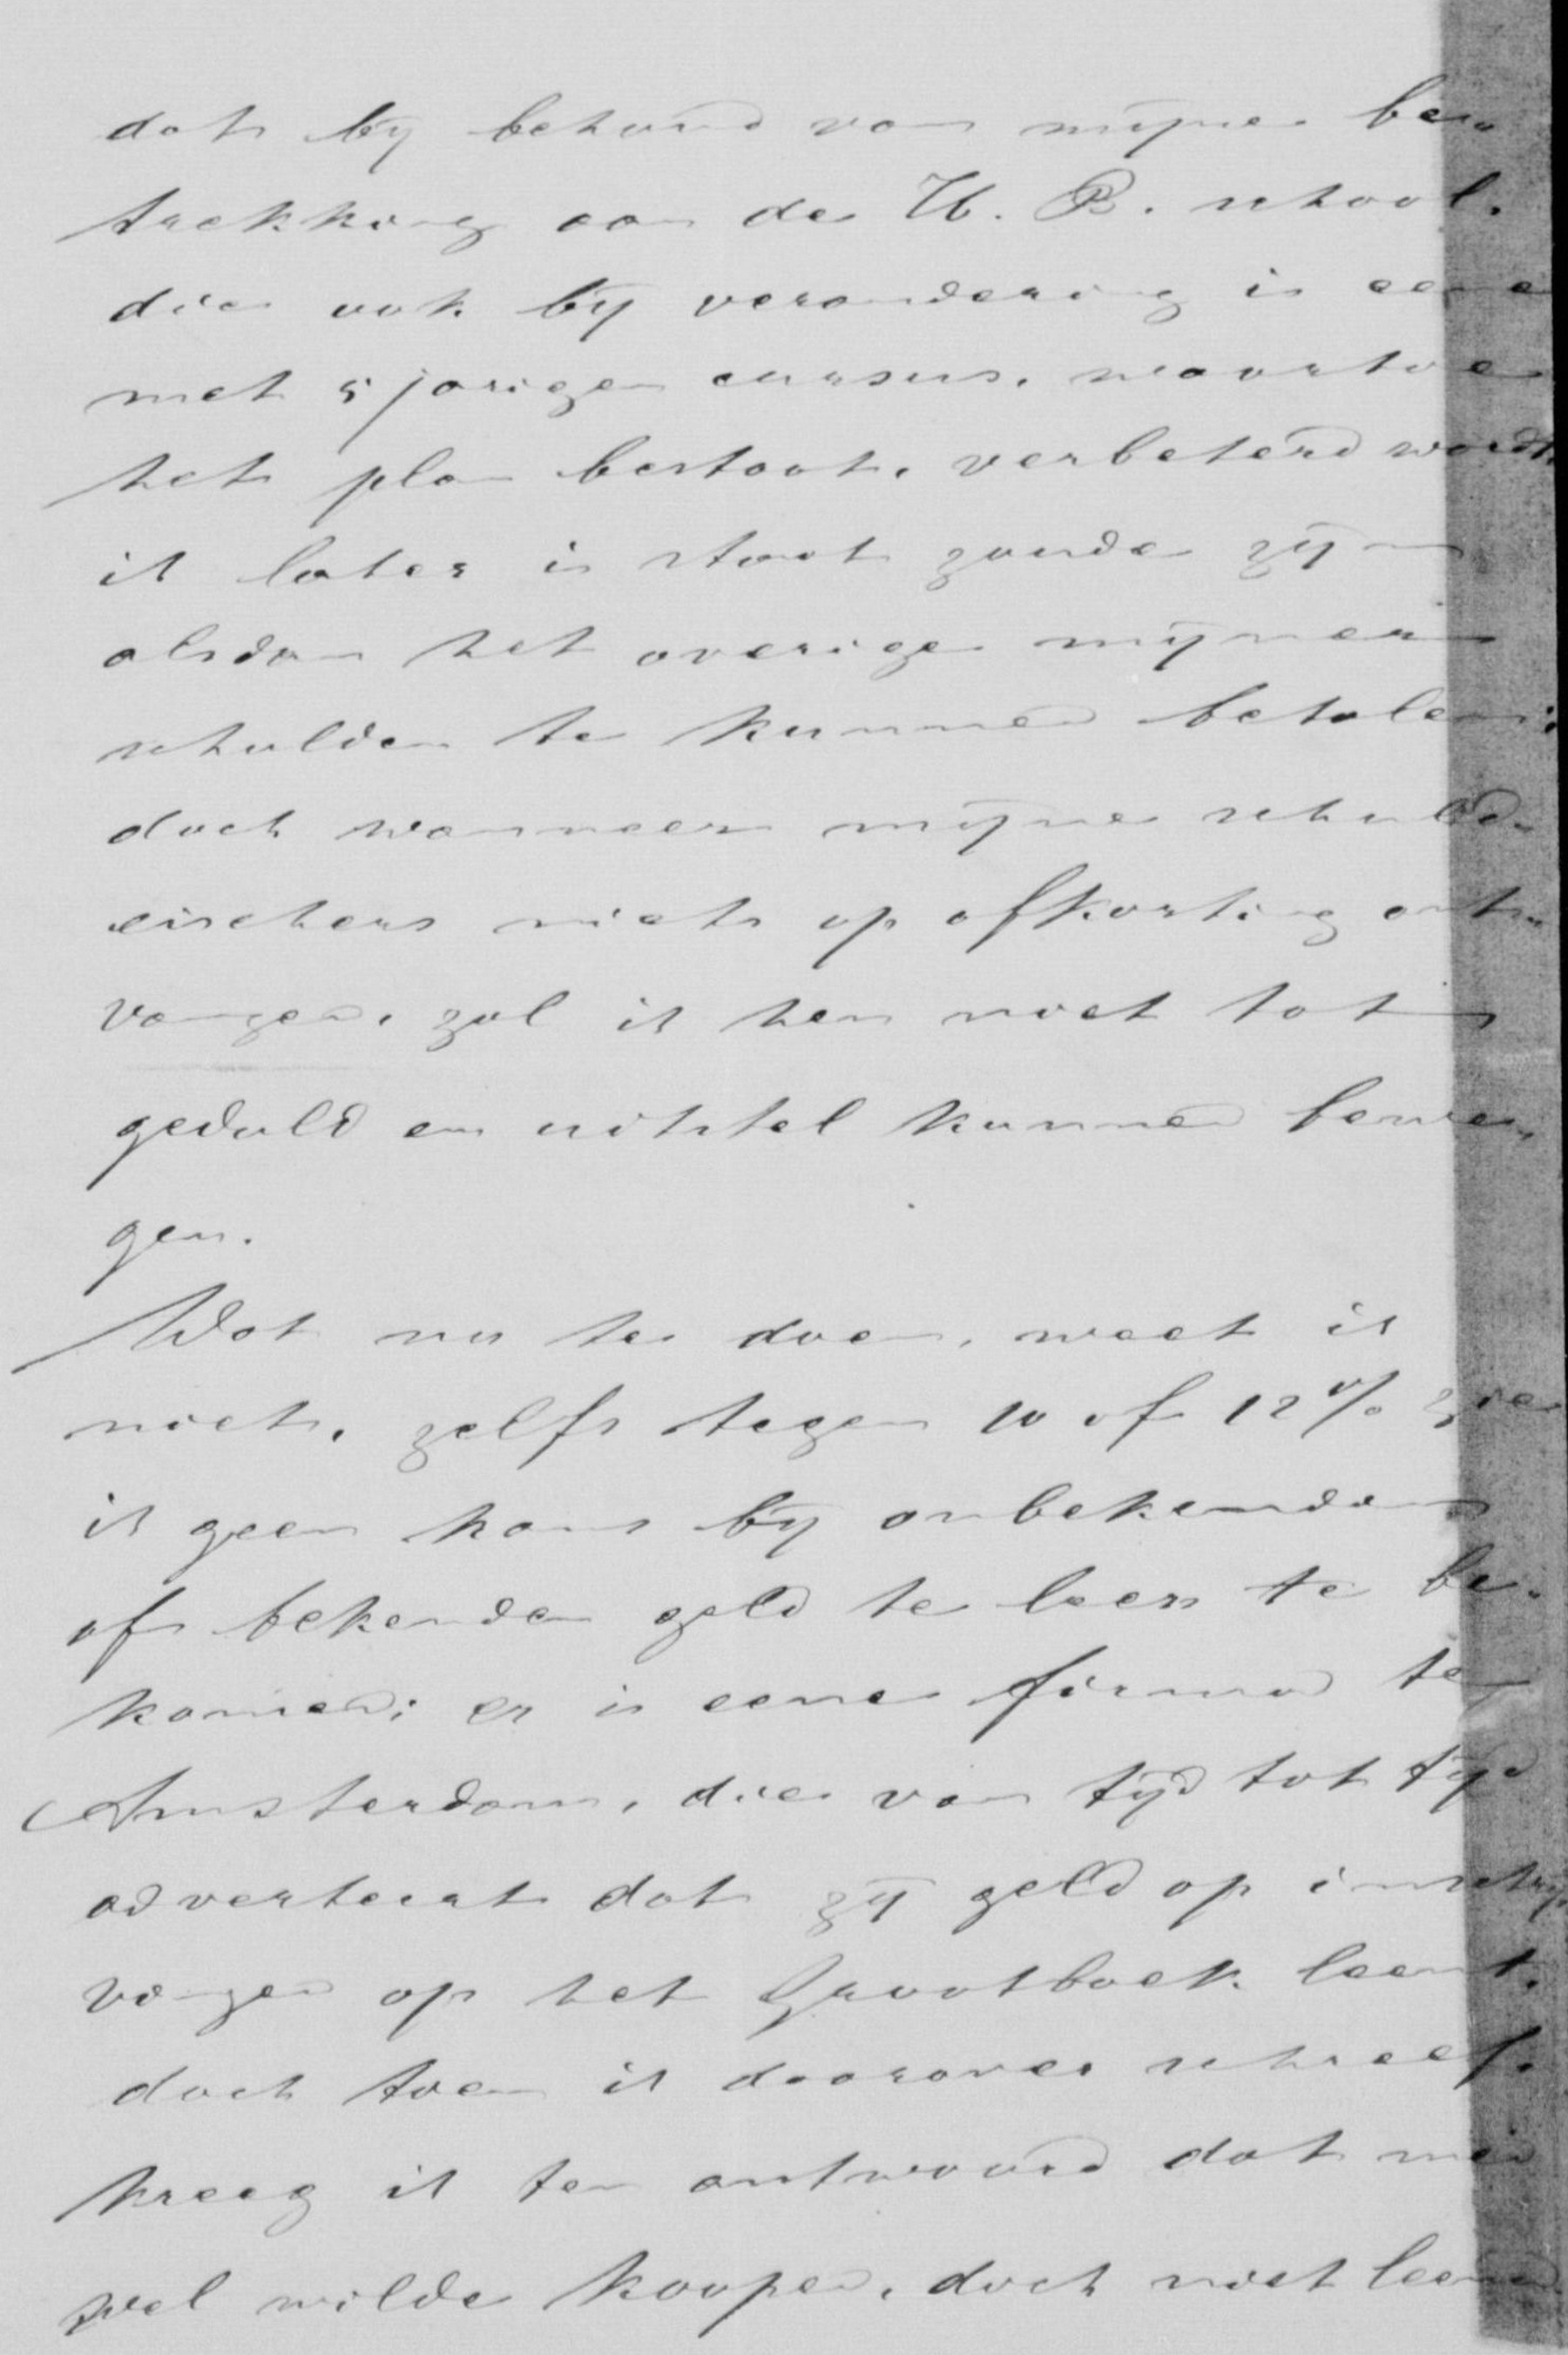 dat by behoud van mijne be„
trekking aan de H. B. school,
die ook bij verandering in eene
met 5 jarigen cursus, waartoe
het plan bestaat, verbeterd wordt,
ik later in staat zoude zijn
alsdan het overige mijner
schulden te kunnen betalen;
doch wanneer mijne schuld„
eischers niets op afkorting ont„
vangen, zal ik hen niet tot
geduld en uitstel kunnen bewe„
gen.
Wat nu te doen, weet ik
niet, zelfs tegen 10 of 12% zie
ik geen kans bij onbekenden
of bekenden geld te leen te be„
komen; er is eene firma te
Amsterdam, die van tijd tot tijd
adverteert dat zij geld op inschrij
vingen op het Grootboek leent,
doch toen ik daarover schreef,
kreeg ik ten antwoord dat men
wel wilde koopen, doch niet leenen